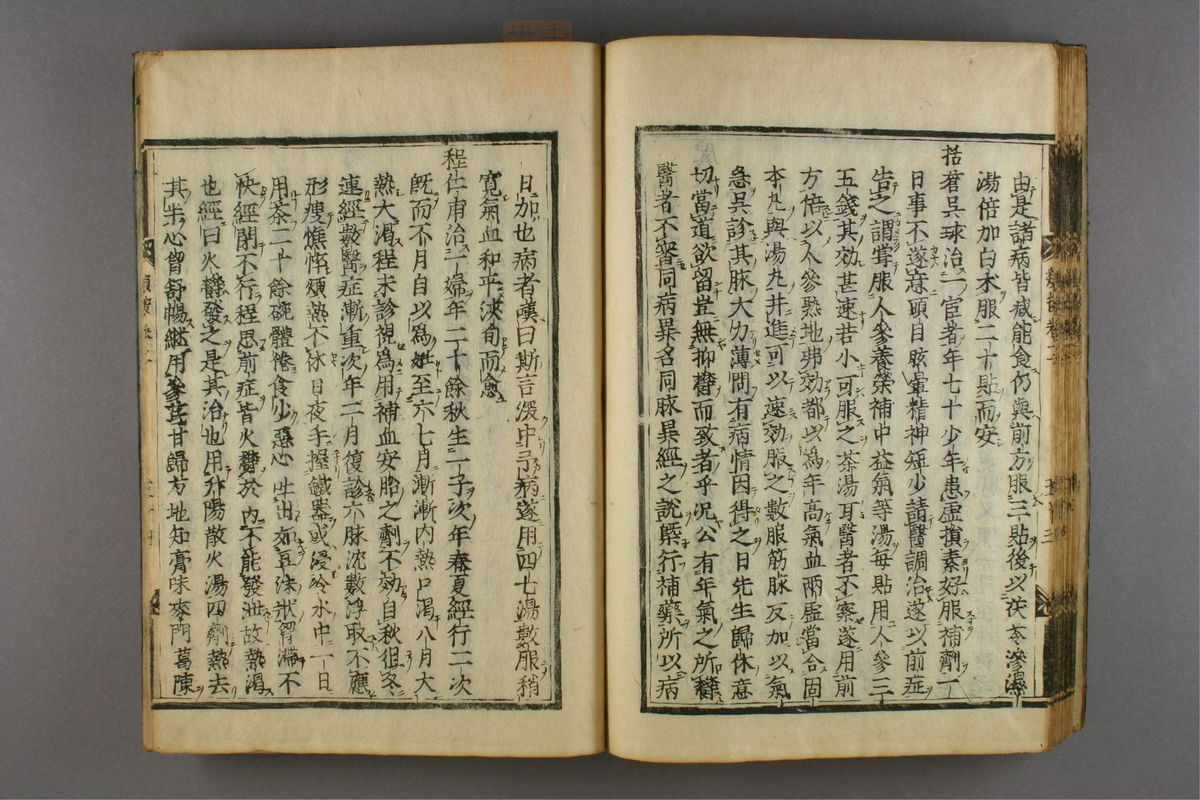 由是諸病皆減能食仍與前方服三貼後以茯苓滲濕
湯倍加白朮服二十貼而安
括蒼吳球治一宦者年七十少年患虛損素好服補劑一
日事不遂意頭目眩暈精神短少請醫調治遂以前症
告之謂嘗服人參養榮補中益氣等湯每貼用人參三
五錢其効甚速若小可服之茶湯耳醫者不察遂用前
方倍以人參熟地弗効都以為年高氣血兩虛當合固
本丸與湯丸并進可以速効服之數服筋脉反加以氣
急吳診其脉大力薄問有病情因得之曰先生歸休意
切當道欲留豈無抑鬱而致者乎況公有年氣之所鬱
醫者不審同病異名同脉異經之說槩行補藥所以病
日加也病者嘆曰斯言深中予病遂用四七湯數服稍
寬氣血和平浹旬而愈
程仁甫治一婦年二十餘秋生一子次年春夏經行二次
既而不月自以為姙至六七月漸漸內熱口渴八月大
熱大渴程未診視為用補血安胎之劑不効自秋徂冬
連經數醫症漸重次年二月復診六脉沈數浮取不應
形瘦憔悴煩熱不休日夜手握鐵器或浸冷水中一日
用茶二十餘碗體倦食少惡心吐出如豆沫狀胷滯不
快經閉不行程思前症皆火鬱於內不能發泄故熱渴
也經曰火鬱發之是其治也用升陽散火湯四劑熱去
其半心胷舒暢繼用參芪甘歸芍地知膏味麥門葛陳